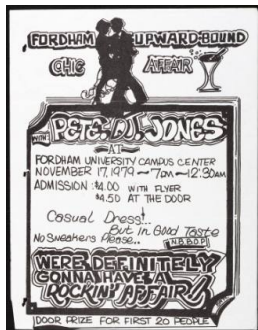 FORDHAM UPWARD-BOUND
CHIC AFFAIR
WITH PETE. D.J. JONES
AT
FORDHAM UNIVERSITY CAMPUS CENTER
NOVEMBER 17, 1979 ~ 7PM ~ 12:30AM
ADMISSION: $4.00 WITH FLYER
$4.50 AT THE DOOR
Casual Dress!..
But in Good Taste
No Sneakers Please..
N.B.B.O.P.
WERE DEFINITELY
GONNA HAVE A
ROCKIN' AFFAIR!
DOOR PRIZE FOR FIRST 20 PEOPLE